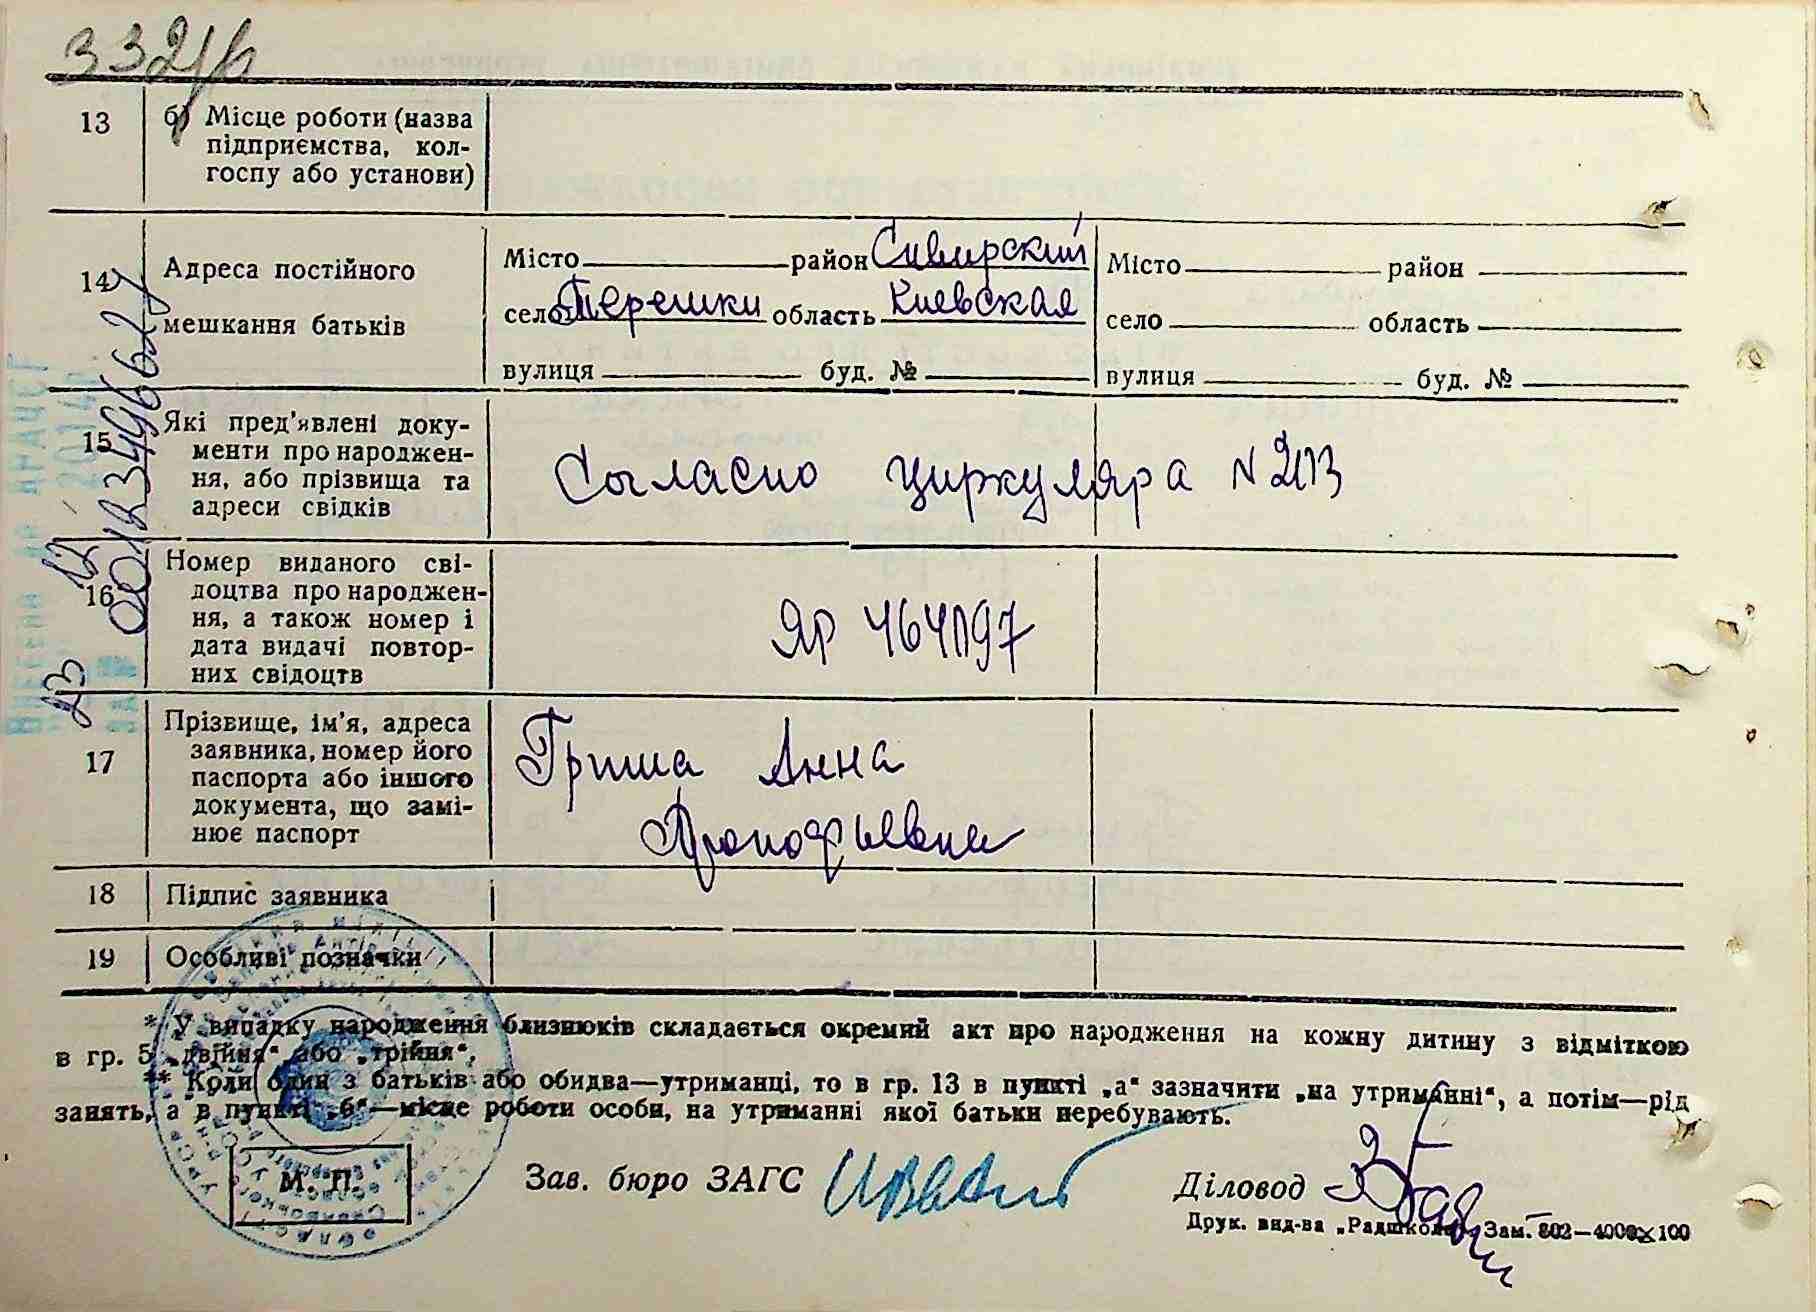 13 б) Місце роботи (назва
підприємства, кол-
госпу або установи)
14 Адреса постійного
мешкання батьків
Місто район Сивирский
село Перешки область Киевская
вулиця буд. №
Місто район
село область
вулиця буд. №
15 Які пред'явлені доку-
менти про народжен-
ня, або прізвища та
адреси свідків
Согласно циркуляра N 203
16 Номер виданого сві-
доцтва про народжен-
ня, а також номер і
дата видачі повтор-
них свідоцтв
ЯР 464097
17 Прізвище, ім'я, адреса
заявника, номер його
паспорта або іншого
документа, що замі-
нює паспорт
Гриша Анна
Прокофьевна
18 Підпис заявника
19 Особливі позначки
* У випадку народження близнюків складається окремий акт про народження на кожну дитину з відміткою
в гр. 5 „двійня“ або „трійня“.
** Коли один з батьків або обидва—утриманці, то в гр. 13 в пункті „а“ зазначити „на утриманні“, а потім—рід
занять, а в пункті „б“—місце роботи особи, на утриманні якої батьки перебувають.
М. П.
Зав. бюро ЗАГС
Діловод
Друк. вид-ва „Радшкола“. Зам. 802—4000х100